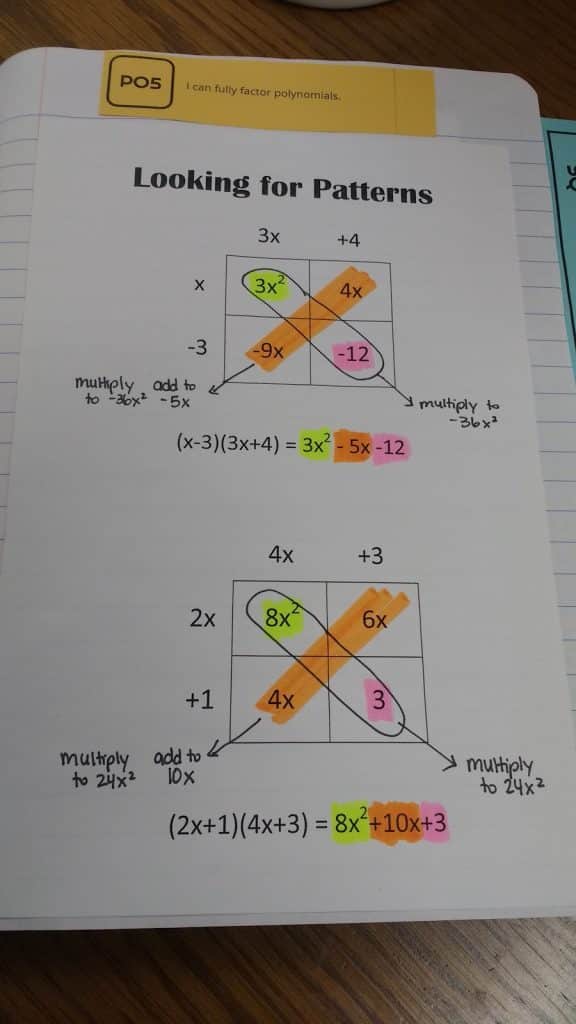 PO5
I can fully factor polynomials.
Looking for Patterns
3x +4
x 3x² 4x
-3 -9x -12
multiply add to
to -36x² -5x
multiply to
-36x²
(x-3)(3x+4) = 3x² - 5x -12
4x +3
2x 8x² 6x
+1 4x 3
multiply add to
to 24x² 10x
multiply
to 24x²
(2x+1)(4x+3) = 8x²+10x+3